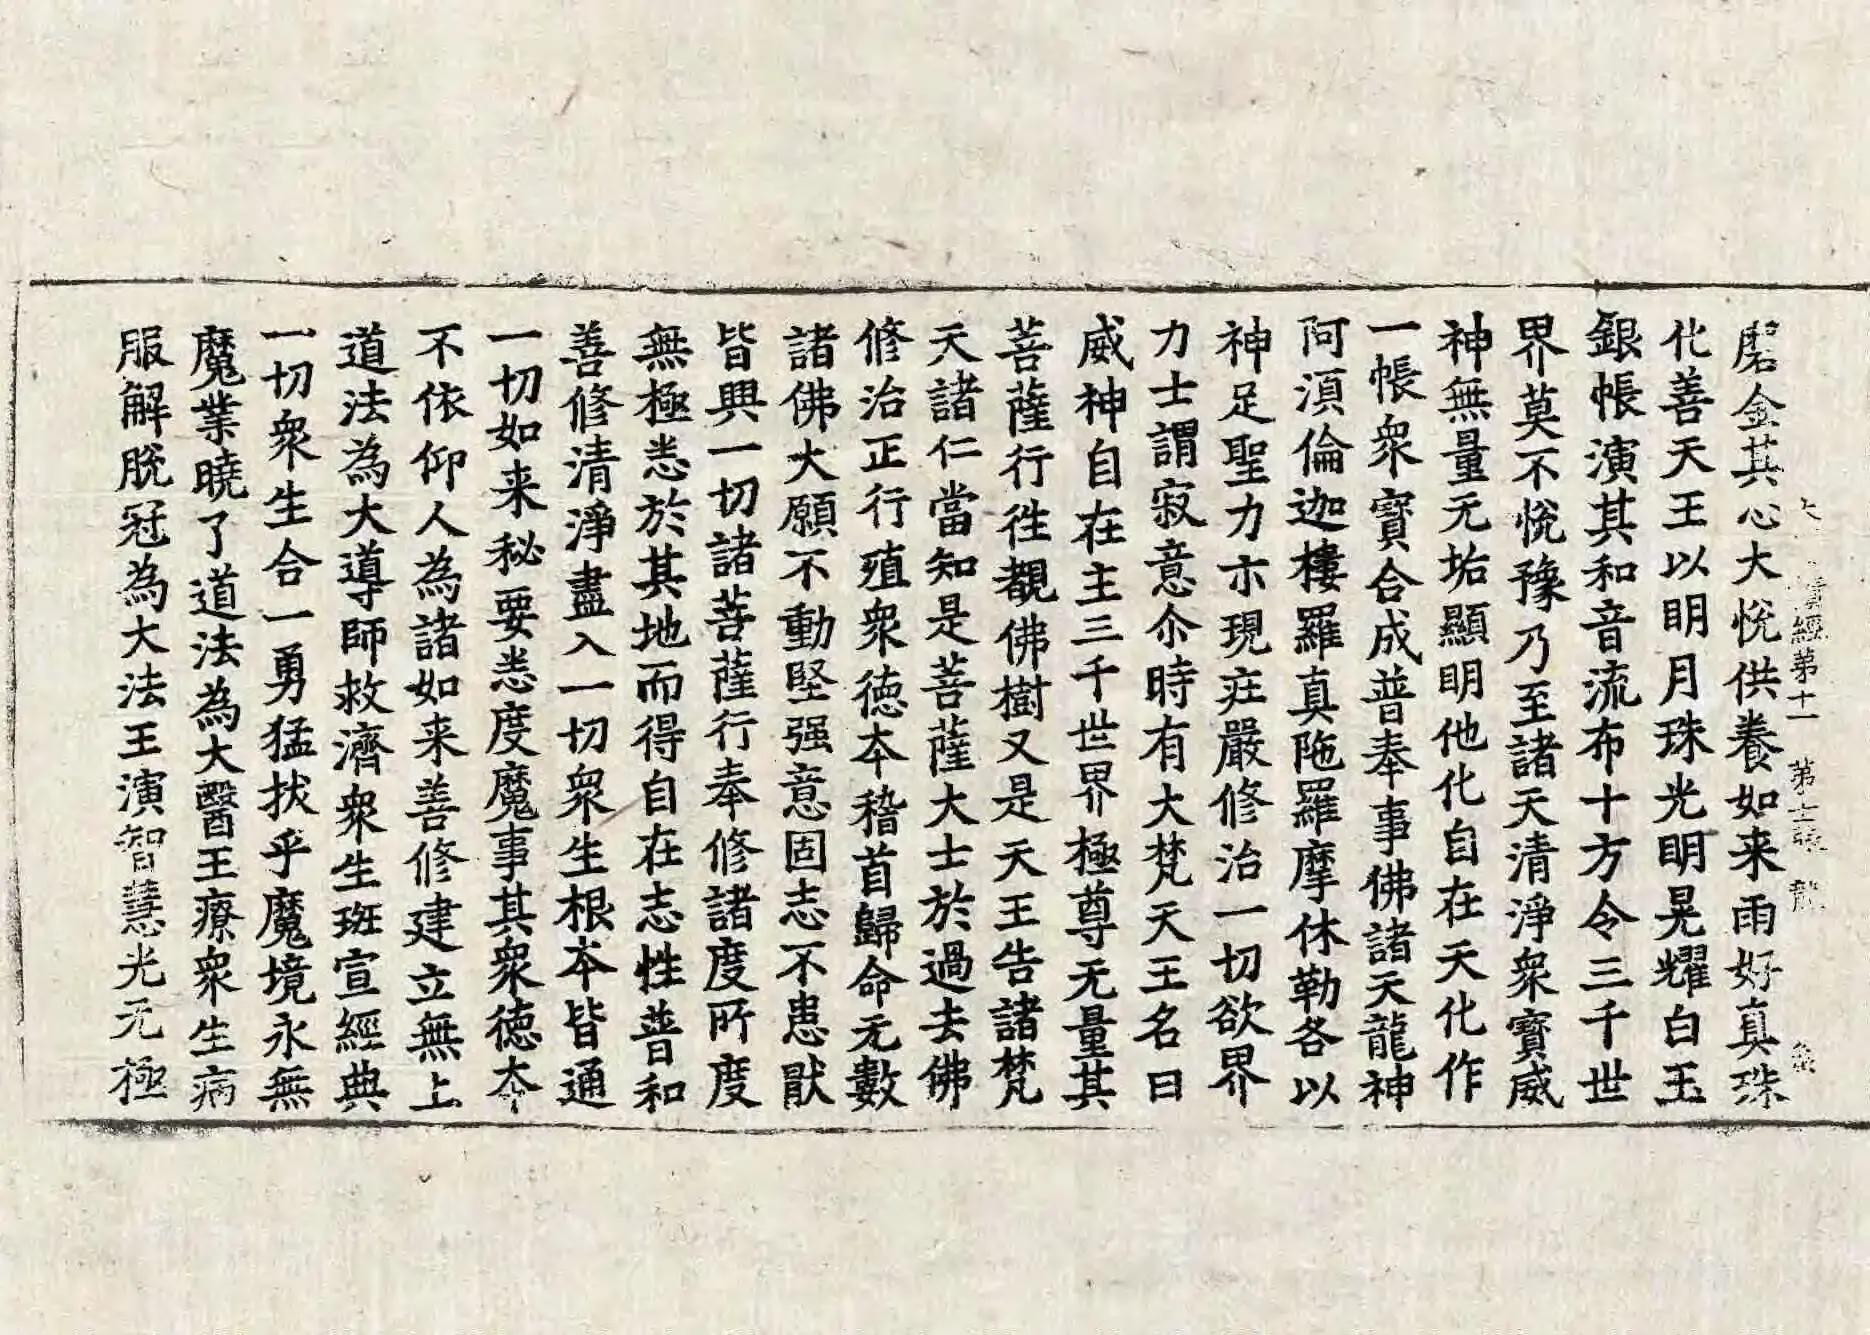 磨金其心大悅供養如来雨好真珠
化善天王以明月珠光明晃耀白玉
銀帳演其和音流布十方令三千世
界莫不悅豫乃至諸天清淨衆寶威
神無量无垢顯明他化自在天化作
一帳衆寶合成普奉事佛諸天龍神
阿須倫迦樓羅真陁羅摩休勒各以
神足聖力亦現莊嚴修治一切欲界
力士謂寂意尒時有大梵天王名曰
威神自在主三千世界極尊无量其
菩薩行徃覩佛樹又是天王告諸梵
天諸仁當知是菩薩大士於過去佛
修治正行殖衆徳夲稽首歸命无數
諸佛大願不動堅强意固志不患猒
皆興一切諸菩薩行奉修諸度所度
無極悉於其地而得自在志性普和
善修清淨盡入一切衆生根夲皆通
一切如来秘要悉度魔事其衆徳夲
不依仰人為諸如来善修建立無上
道法為大導師救濟衆生班宣經典
一切衆生合一勇猛抜乎魔境永無
魔業曉了道法為大醫王療衆生病
服解脫冠為大法王演智慧光无極
大 經第十一 第士張 龍